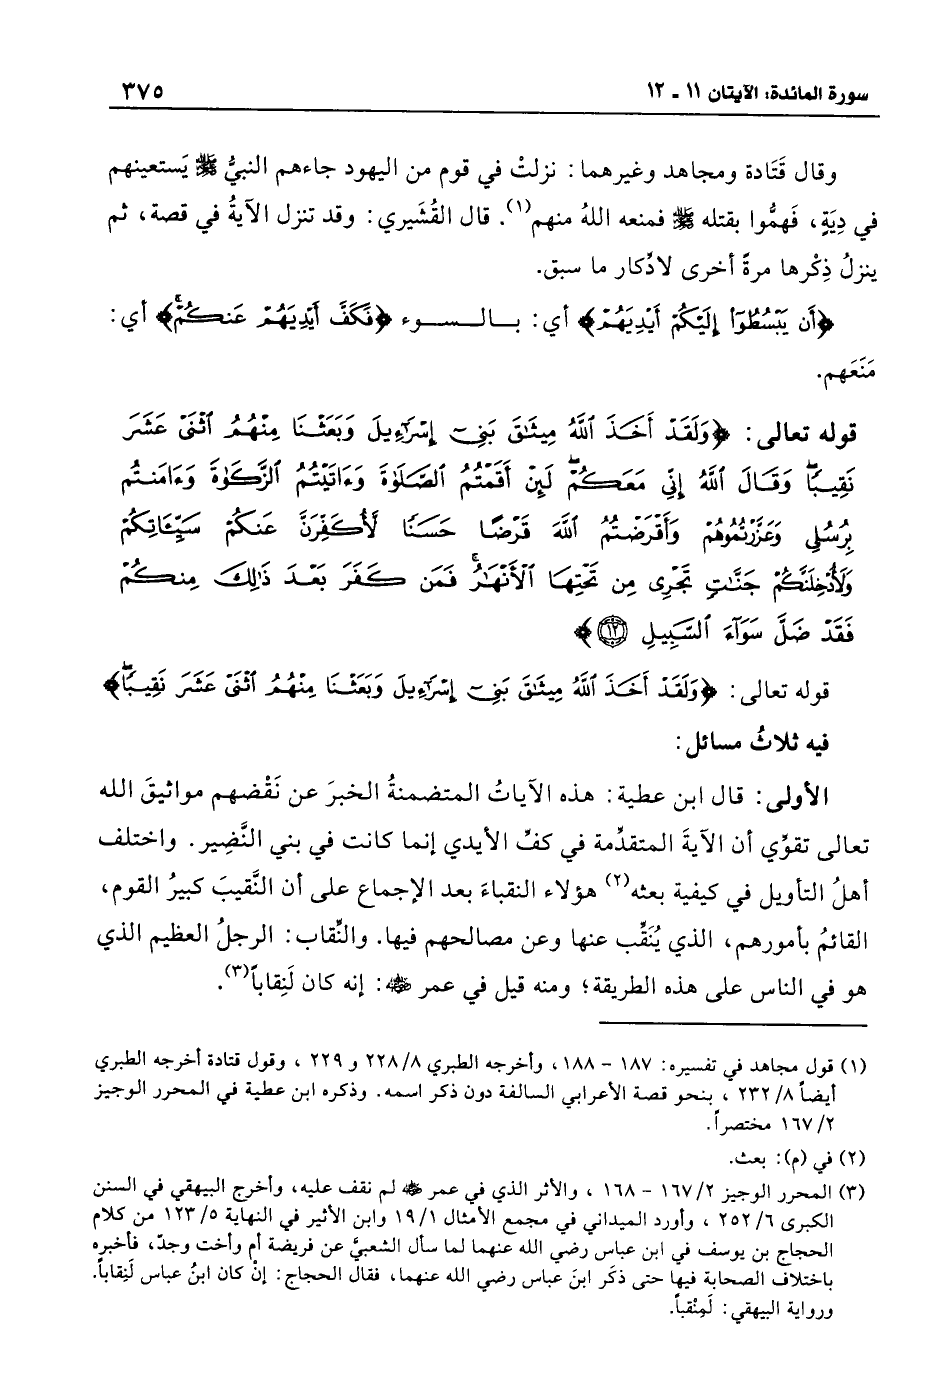 سورة المائدة: الآيتان ١١ - ١٢
٣٧٥
وقال قَتَادة ومجاهد وغيرهما: نزلتْ في قوم من اليهود جاءهم النبيُّ ﷺ يَستعينهم
في دِيَةٍ، فَهمُّوا بقتله ﷺ فمنعه اللهُ منهم(١). قال القُشَيري: وقد تنزل الآيةُ في قصة، ثم
ينزلُ ذِكْرها مرةً أخرى لادِّكار ما سبق.
﴿أَن يَبْسُطُوٓا۟ إِلَيْكُمْ أَيْدِيَهُمْ﴾ أي: بالسوء ﴿فَكَفَّ أَيْدِيَهُمْ عَنكُمْ ۚ﴾ أي:
مَنَعَهم.
قوله تعالى: ﴿وَلَقَدْ أَخَذَ ٱللَّهُ مِيثَٰقَ بَنِىٓ إِسْرَٰٓءِيلَ وَبَعَثْنَا مِنْهُمُ ٱثْنَىْ عَشَرَ
نَقِيبًا ۖ وَقَالَ ٱللَّهُ إِنِّى مَعَكُمْ ۖ لَئِنْ أَقَمْتُمُ ٱلصَّلَوٰةَ وَءَاتَيْتُمُ ٱلزَّكَوٰةَ وَءَامَنتُم
بِرُسُلِى وَعَزَّرْتُمُوهُمْ وَأَقْرَضْتُمُ ٱللَّهَ قَرْضًا حَسَنًا لَّأُكَفِّرَنَّ عَنكُمْ سَيِّـَٔاتِكُمْ
وَلَأُدْخِلَنَّكُمْ جَنَّٰتٍ تَجْرِى مِن تَحْتِهَا ٱلْأَنْهَٰرُ ۚ فَمَن كَفَرَ بَعْدَ ذَٰلِكَ مِنكُمْ
فَقَدْ ضَلَّ سَوَآءَ ٱلسَّبِيلِ ۝١٢﴾
قوله تعالى: ﴿وَلَقَدْ أَخَذَ ٱللَّهُ مِيثَٰقَ بَنِىٓ إِسْرَٰٓءِيلَ وَبَعَثْنَا مِنْهُمُ ٱثْنَىْ عَشَرَ نَقِيبًا ۖ﴾
فيه ثلاثُ مسائل:
الأولى: قال ابن عطية: هذه الآياتُ المتضمنةُ الخبرَ عن نَقْضهم مواثيقَ الله
تعالى تقوِّي أن الآيةَ المتقدِّمة في كفِّ الأيدي إنما كانت في بني النَّضِير. واختلف
أهلُ التأويل في كيفية بعثه(٢) هؤلاء النقباءَ بعد الإجماع على أن النَّقيبَ كبيرُ القوم،
القائمُ بأمورهم، الذي يُنَقِّب عنها وعن مصالحهم فيها. والنِّقاب: الرجلُ العظيم الذي
هو في الناس على هذه الطريقة؛ ومنه قيل في عمر ﷺ: إنه كان لَنِقاباً(٣).
(١) قول مجاهد في تفسيره: ١٨٧ - ١٨٨، وأخرجه الطبري ٢٢٨/٨ و ٢٢٩ ، وقول قتادة أخرجه الطبري
أيضاً ٢٣٢/٨ ، بنحو قصة الأعرابي السالفة دون ذكر اسمه. وذكره ابن عطية في المحرر الوجيز
١٦٧/٢ مختصراً.
(٢) في (م): بعث.
(٣) المحرر الوجيز ١٦٧/٢ - ١٦٨ ، والأثر الذي في عمر ﷺ لم نقف عليه، وأخرج البيهقي في السنن
الكبرى ٢٥٢/٦ ، وأورد الميداني في مجمع الأمثال ١٩/١ وابن الأثير في النهاية ١٢٣/٥ من كلام
الحجاج بن يوسف في ابن عباس رضي الله عنهما لما سأل الشعبيَّ عن فريضة أم وأخت وجدّ، فأخبره
باختلاف الصحابة فيها حتى ذكَر ابنَ عباس رضي الله عنهما، فقال الحجاج: إنْ كان ابنُ عباس لَنِقاباً.
ورواية البيهقي: لَمِنْقباً.